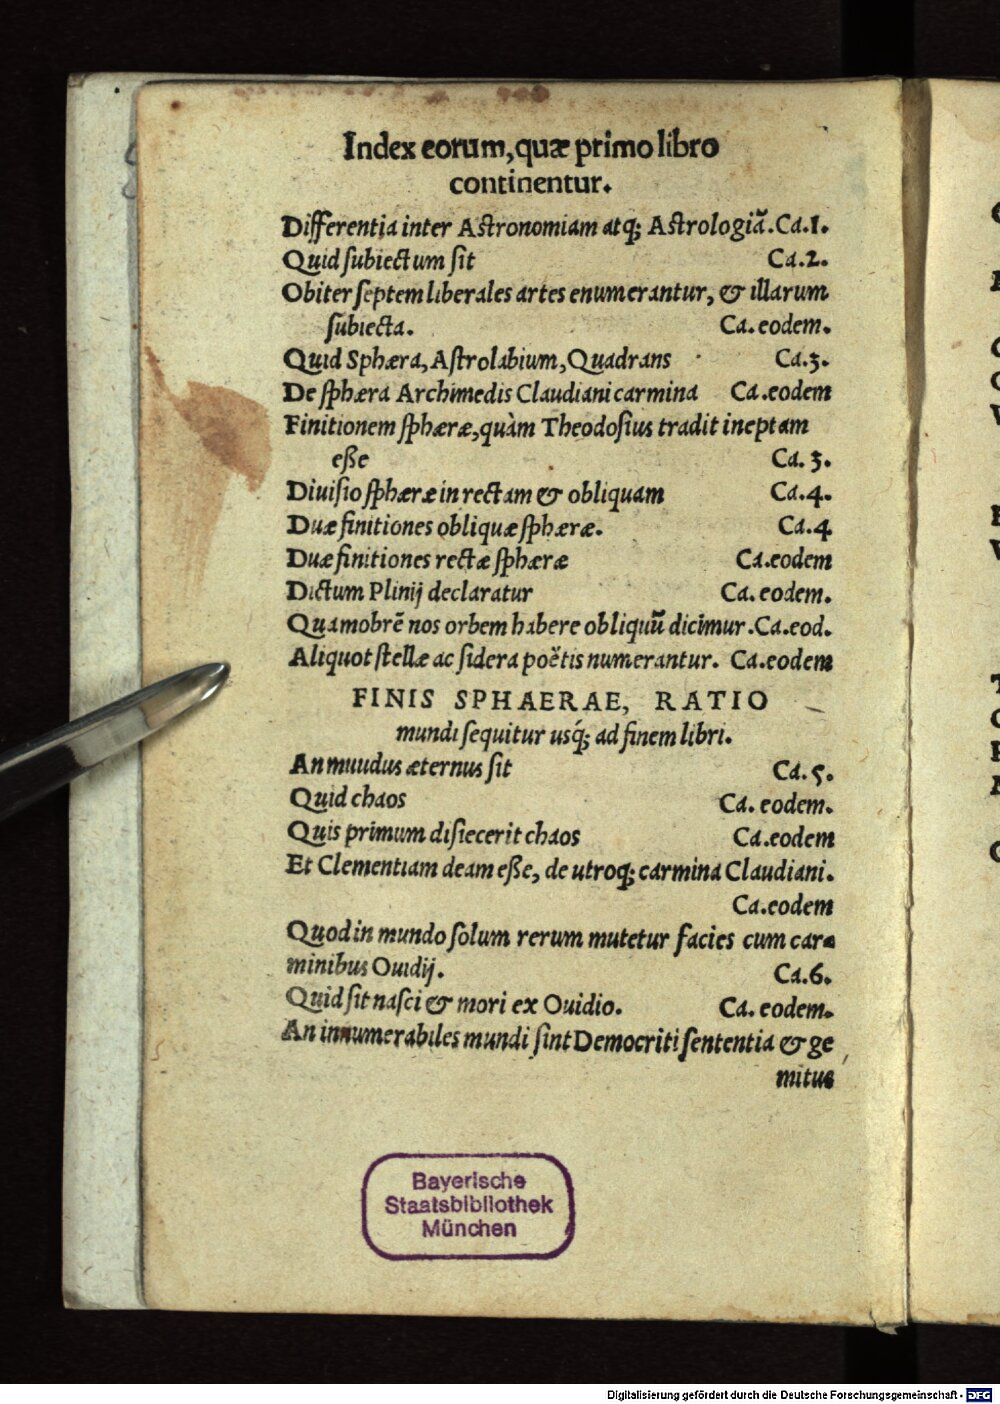 Index eorum, quæ primo libro
continentur.
Differentia inter Astronomiam atq; Astrologiã. Ca.1.
Quid subiectum sit Ca.2.
Obiter septem liberales artes enumerantur, & illarum
subiecta. Ca. eodem.
Quid Sphæra, Astrolabium, Quadrans Ca.3.
De sphæra Archimedis Claudiani carmina Ca.eodem
Finitionem sphæræ, quàm Theodosius tradit ineptam
eße Ca. 3.
Diuisio sphæræ in rectam & obliquam Ca.4.
Duæ finitiones obliquæ sphæræ. Ca.4
Duæ finitiones rectæ sphæræ Ca.eodem
Dictum Plinij declaratur Ca. eodem.
Quamobrẽ nos orbem habere obliquũ dicimur. Ca.eod.
Aliquot stellæ ac sidera poëtis numerantur. Ca.eodem
FINIS SPHAERAE, RATIO
mundi sequitur usq́; ad finem libri.
An muudus æternus sit Ca.5.
Quid chaos Ca. eodem.
Quis primum disiecerit chaos Ca.eodem
Et Clementiam deam eße, de utroq; carmina Claudiani.
Ca.eodem
Quod in mundo solum rerum mutetur facies cum car=
minibus Ouidij. Ca.6.
Quid sit nasci & mori ex Ouidio. Ca. eodem.
An innumerabiles mundi sint Democriti sententia & ge
mitus
Bayerische
Staatsbibliothek
München
Digitalisierung gefördert durch die Deutsche Forschungsgemeinschaft - DFG